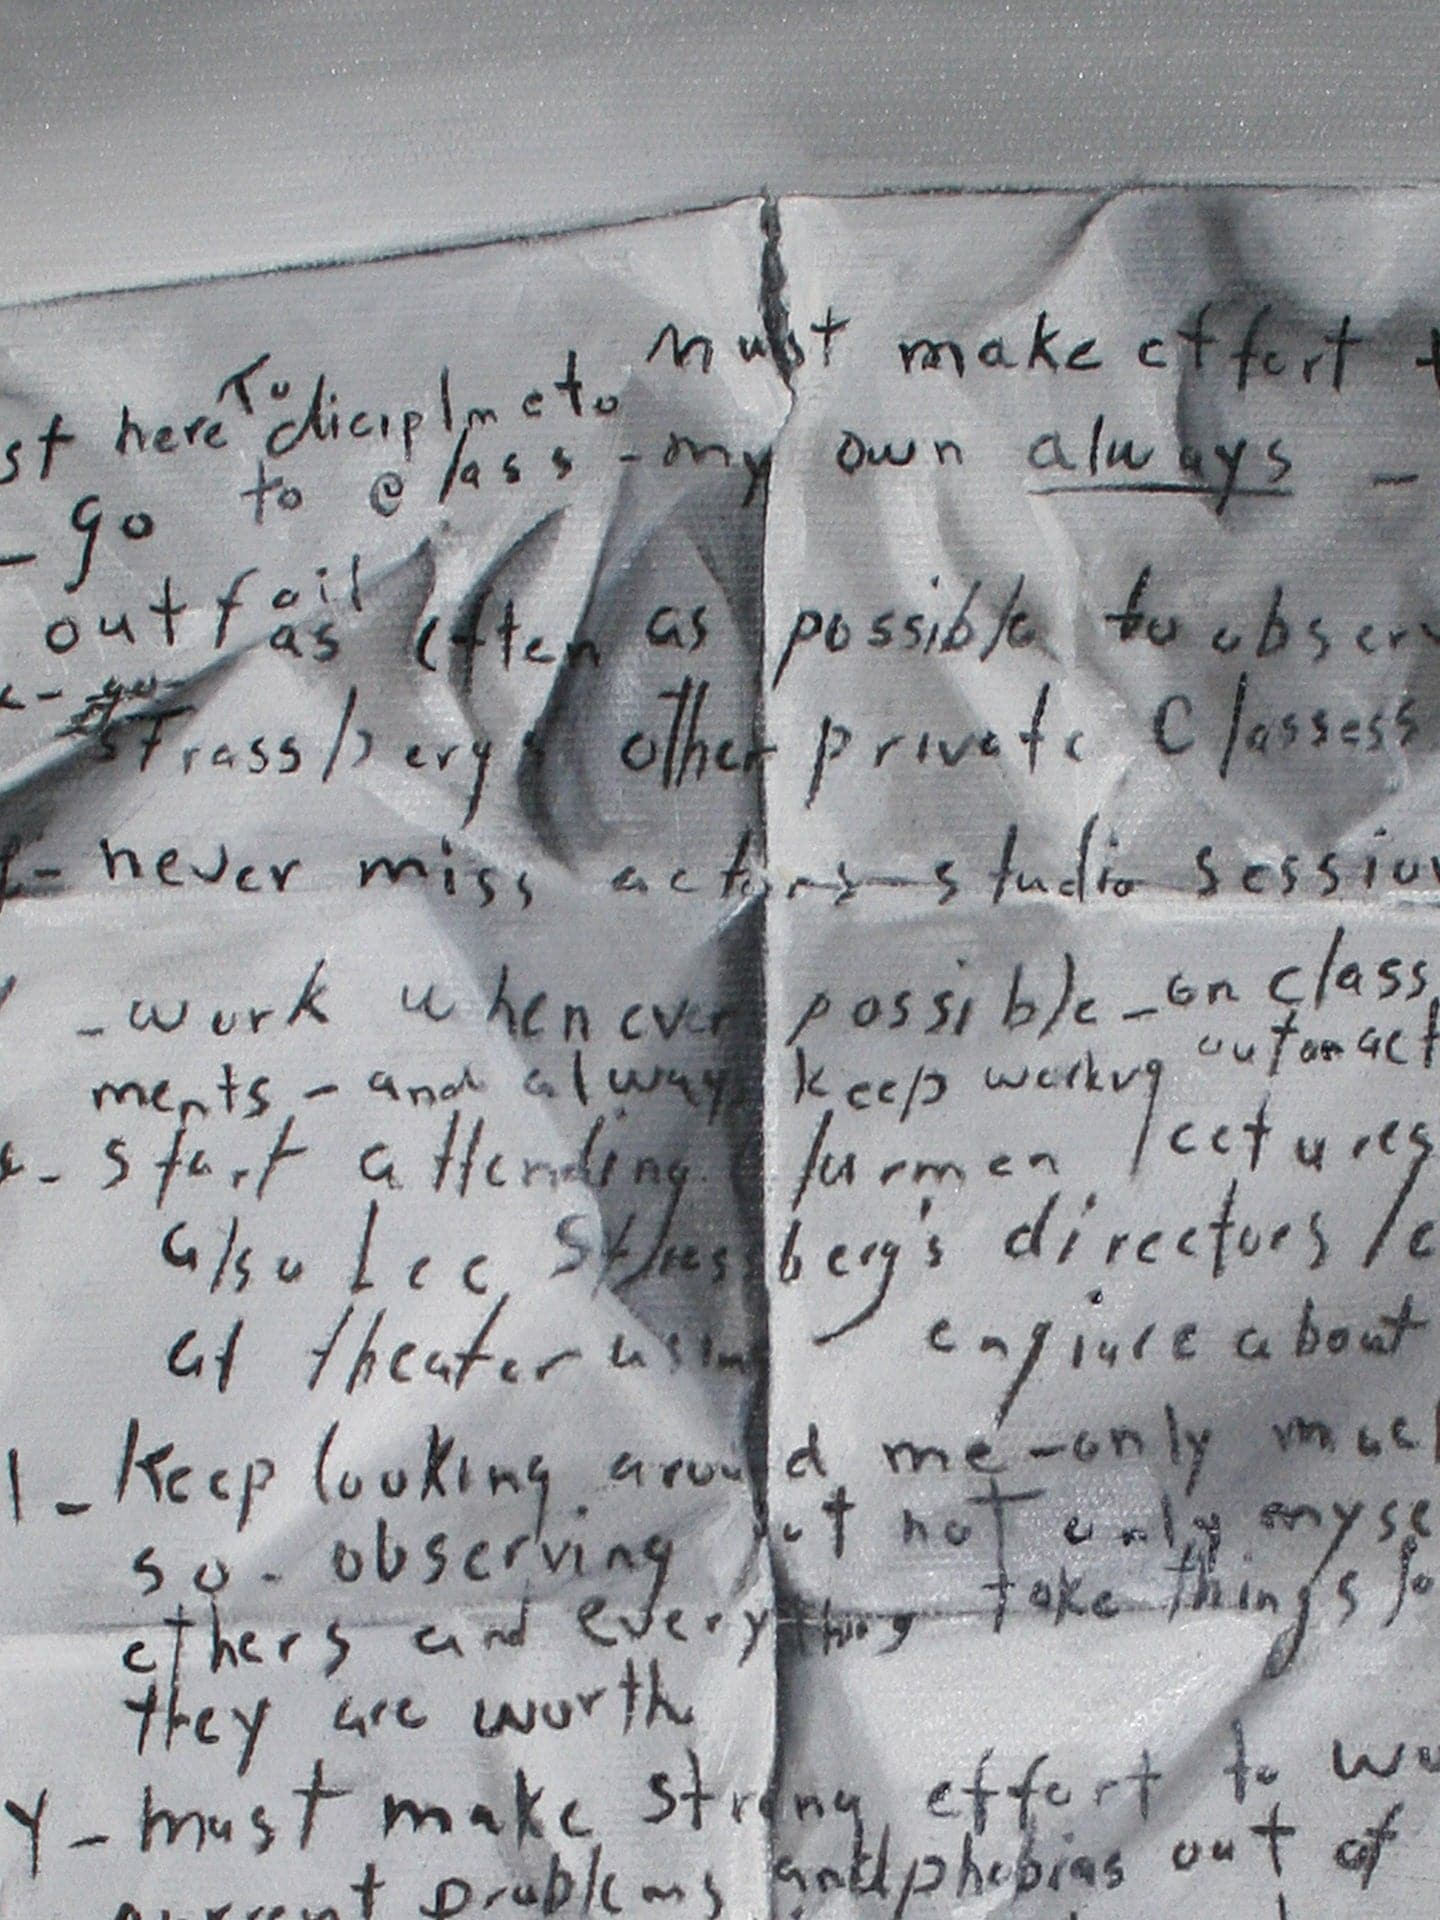 must make effort t
st here To diciplineto
_ go to class - my own always -
out fail
as often as possible to observ
- go -
Strassberg's other private Classess
- never miss actors studio session
- work whenever possible - on class
ments - and always keep working
- start attending lurmen lectures
also Lee Strassberg's directors le
at theater using - enqiure about
l - Keep looking around me - only muc
so - observing but not only myse
others and everything take things fo
they are worth
y - must make strong effort to wo
current problems and phobias out of